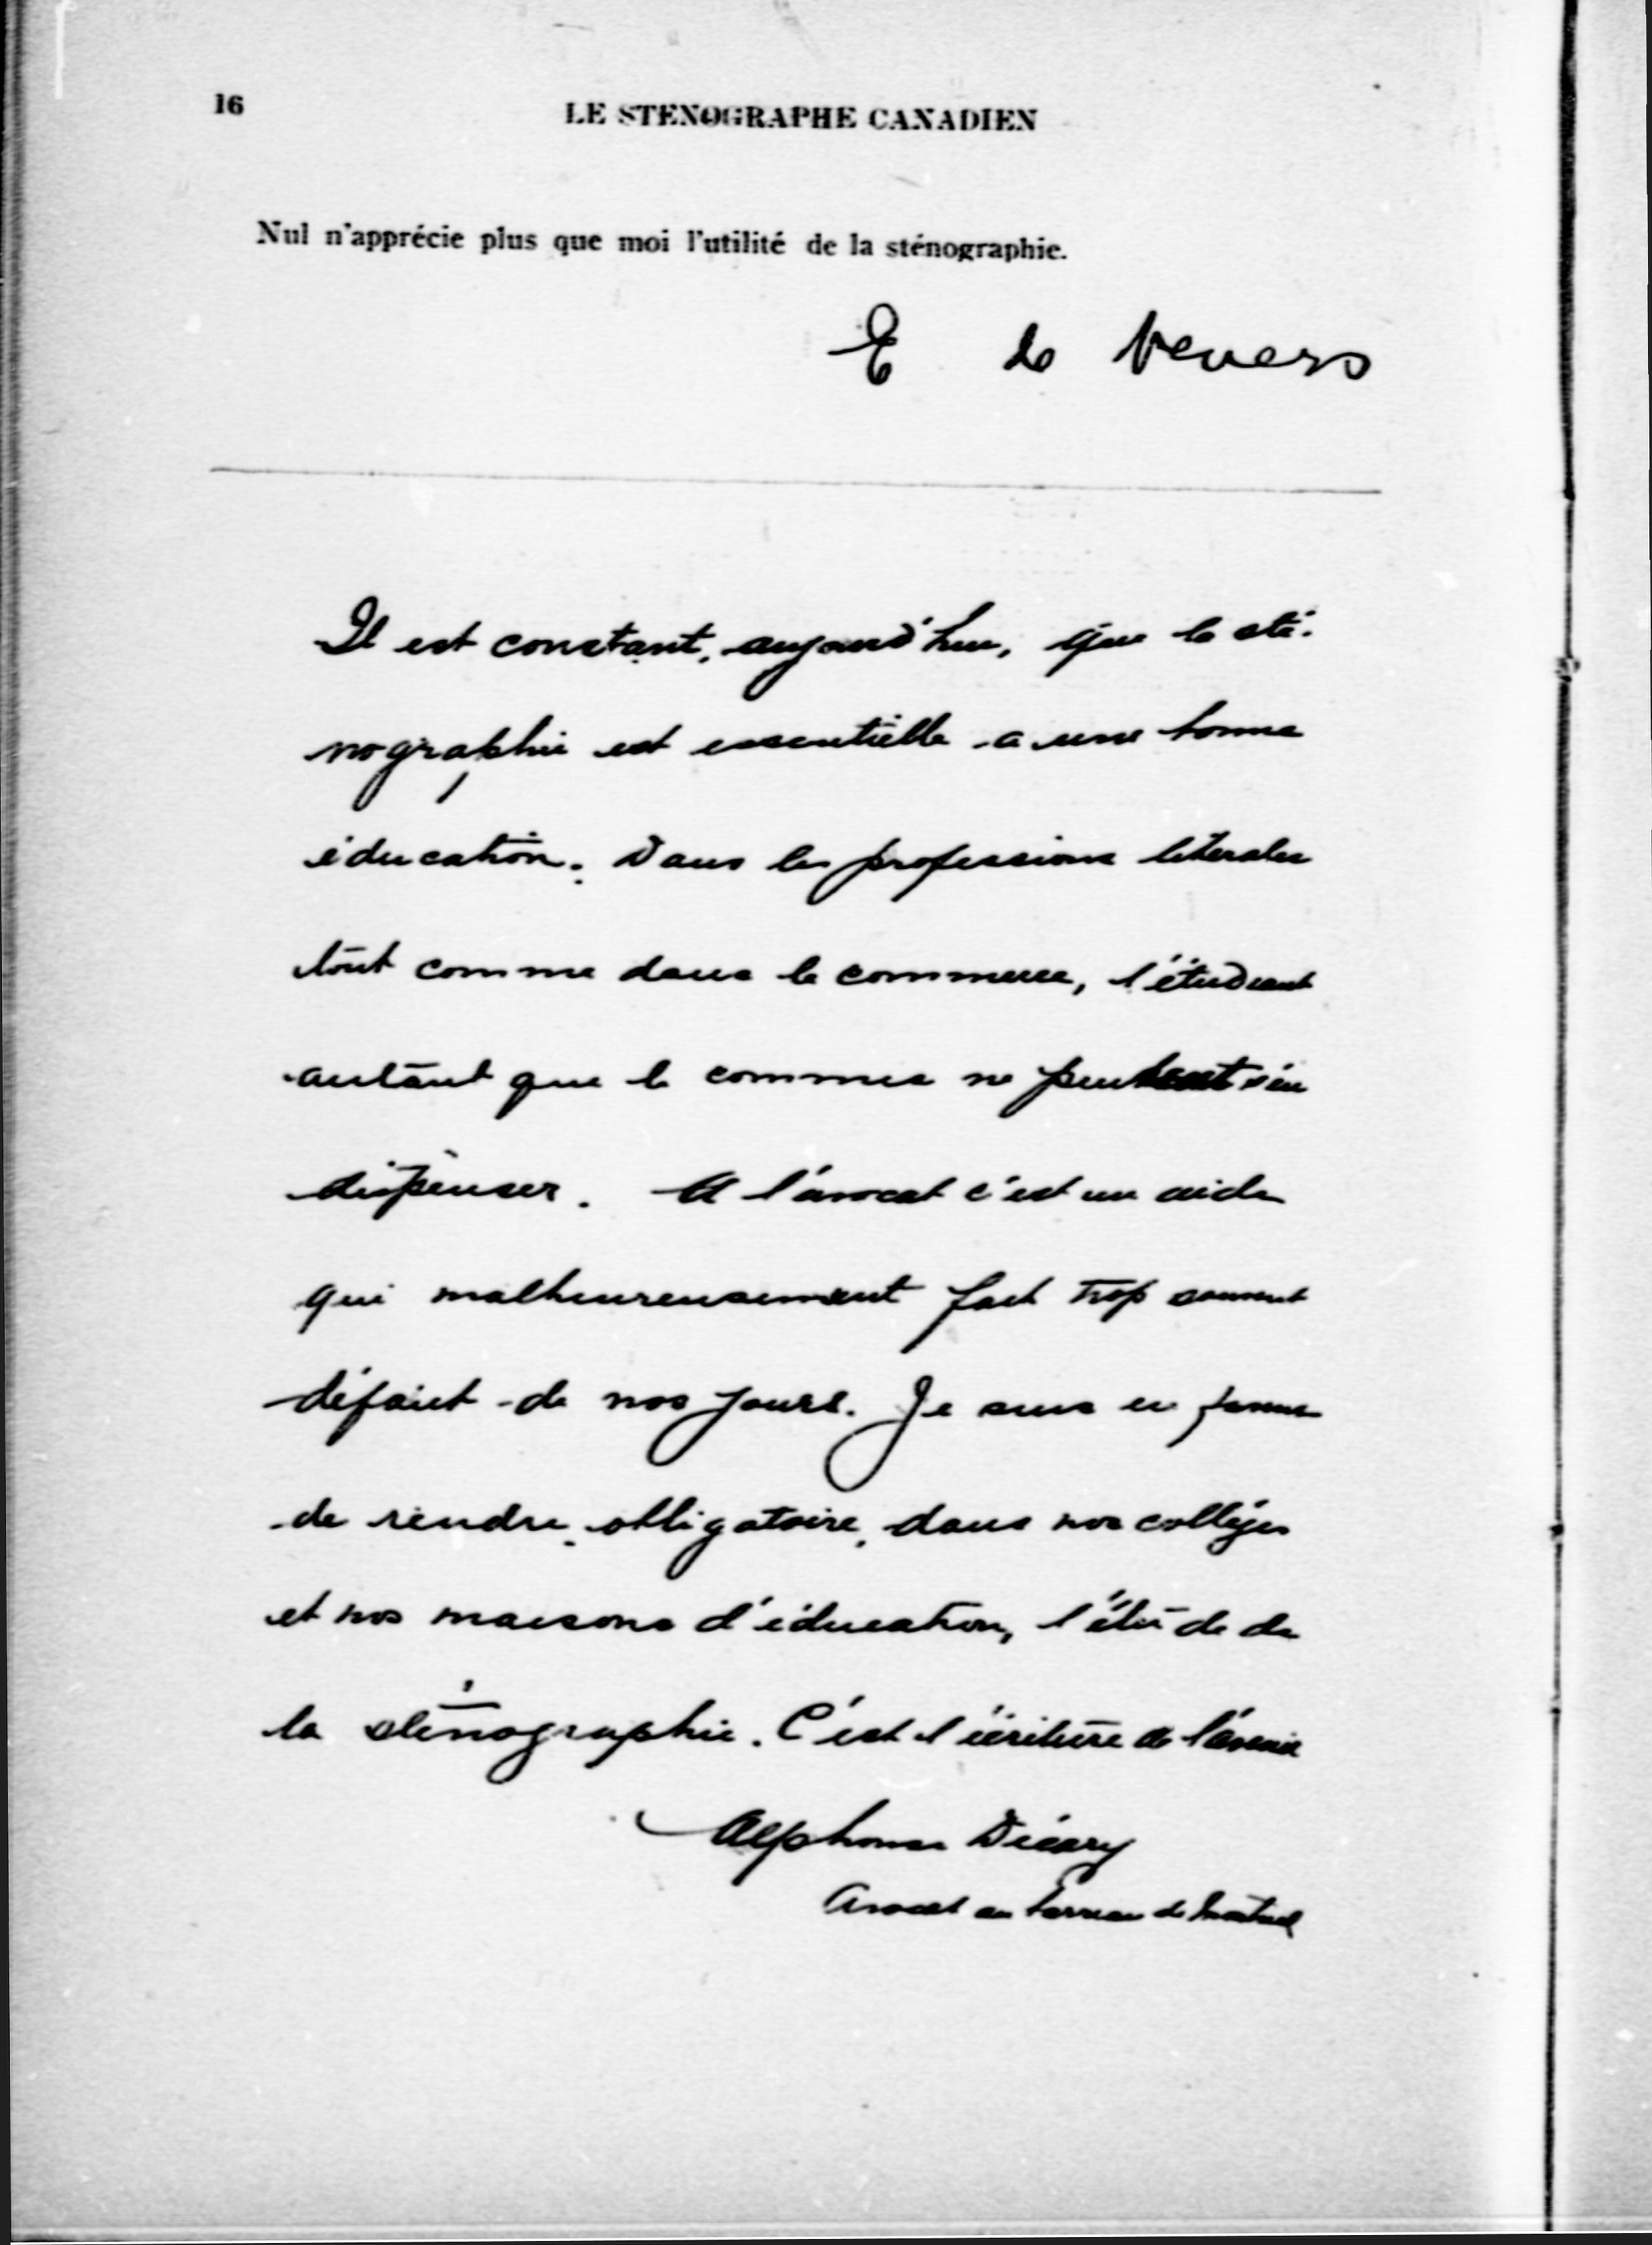 16
LE STENOGRAPHE CANADIEN
Nul n'apprécie plus que moi l'utilité de la sténographie.
E de Nevers
Il est constant, aujourd'hui, que la sté-
nographie est essentielle a une bonne
éducation. Dans les professions libérales
tout comme dans le commerce, l'étudiant
autant que le commis ne peuvent s'en
dispenser. A l'avocat c'est un aide
qui malheureusement fait trop souvent
défaut de nos jours. Je suis en faveur
de rendre obligatoire, dans nos collèges
et nos maisons d'éducation, l'étude de
la sténographie. C'est l'écriture de l'avenir
Alphonse Décary
Avocat au barreau de Montréal